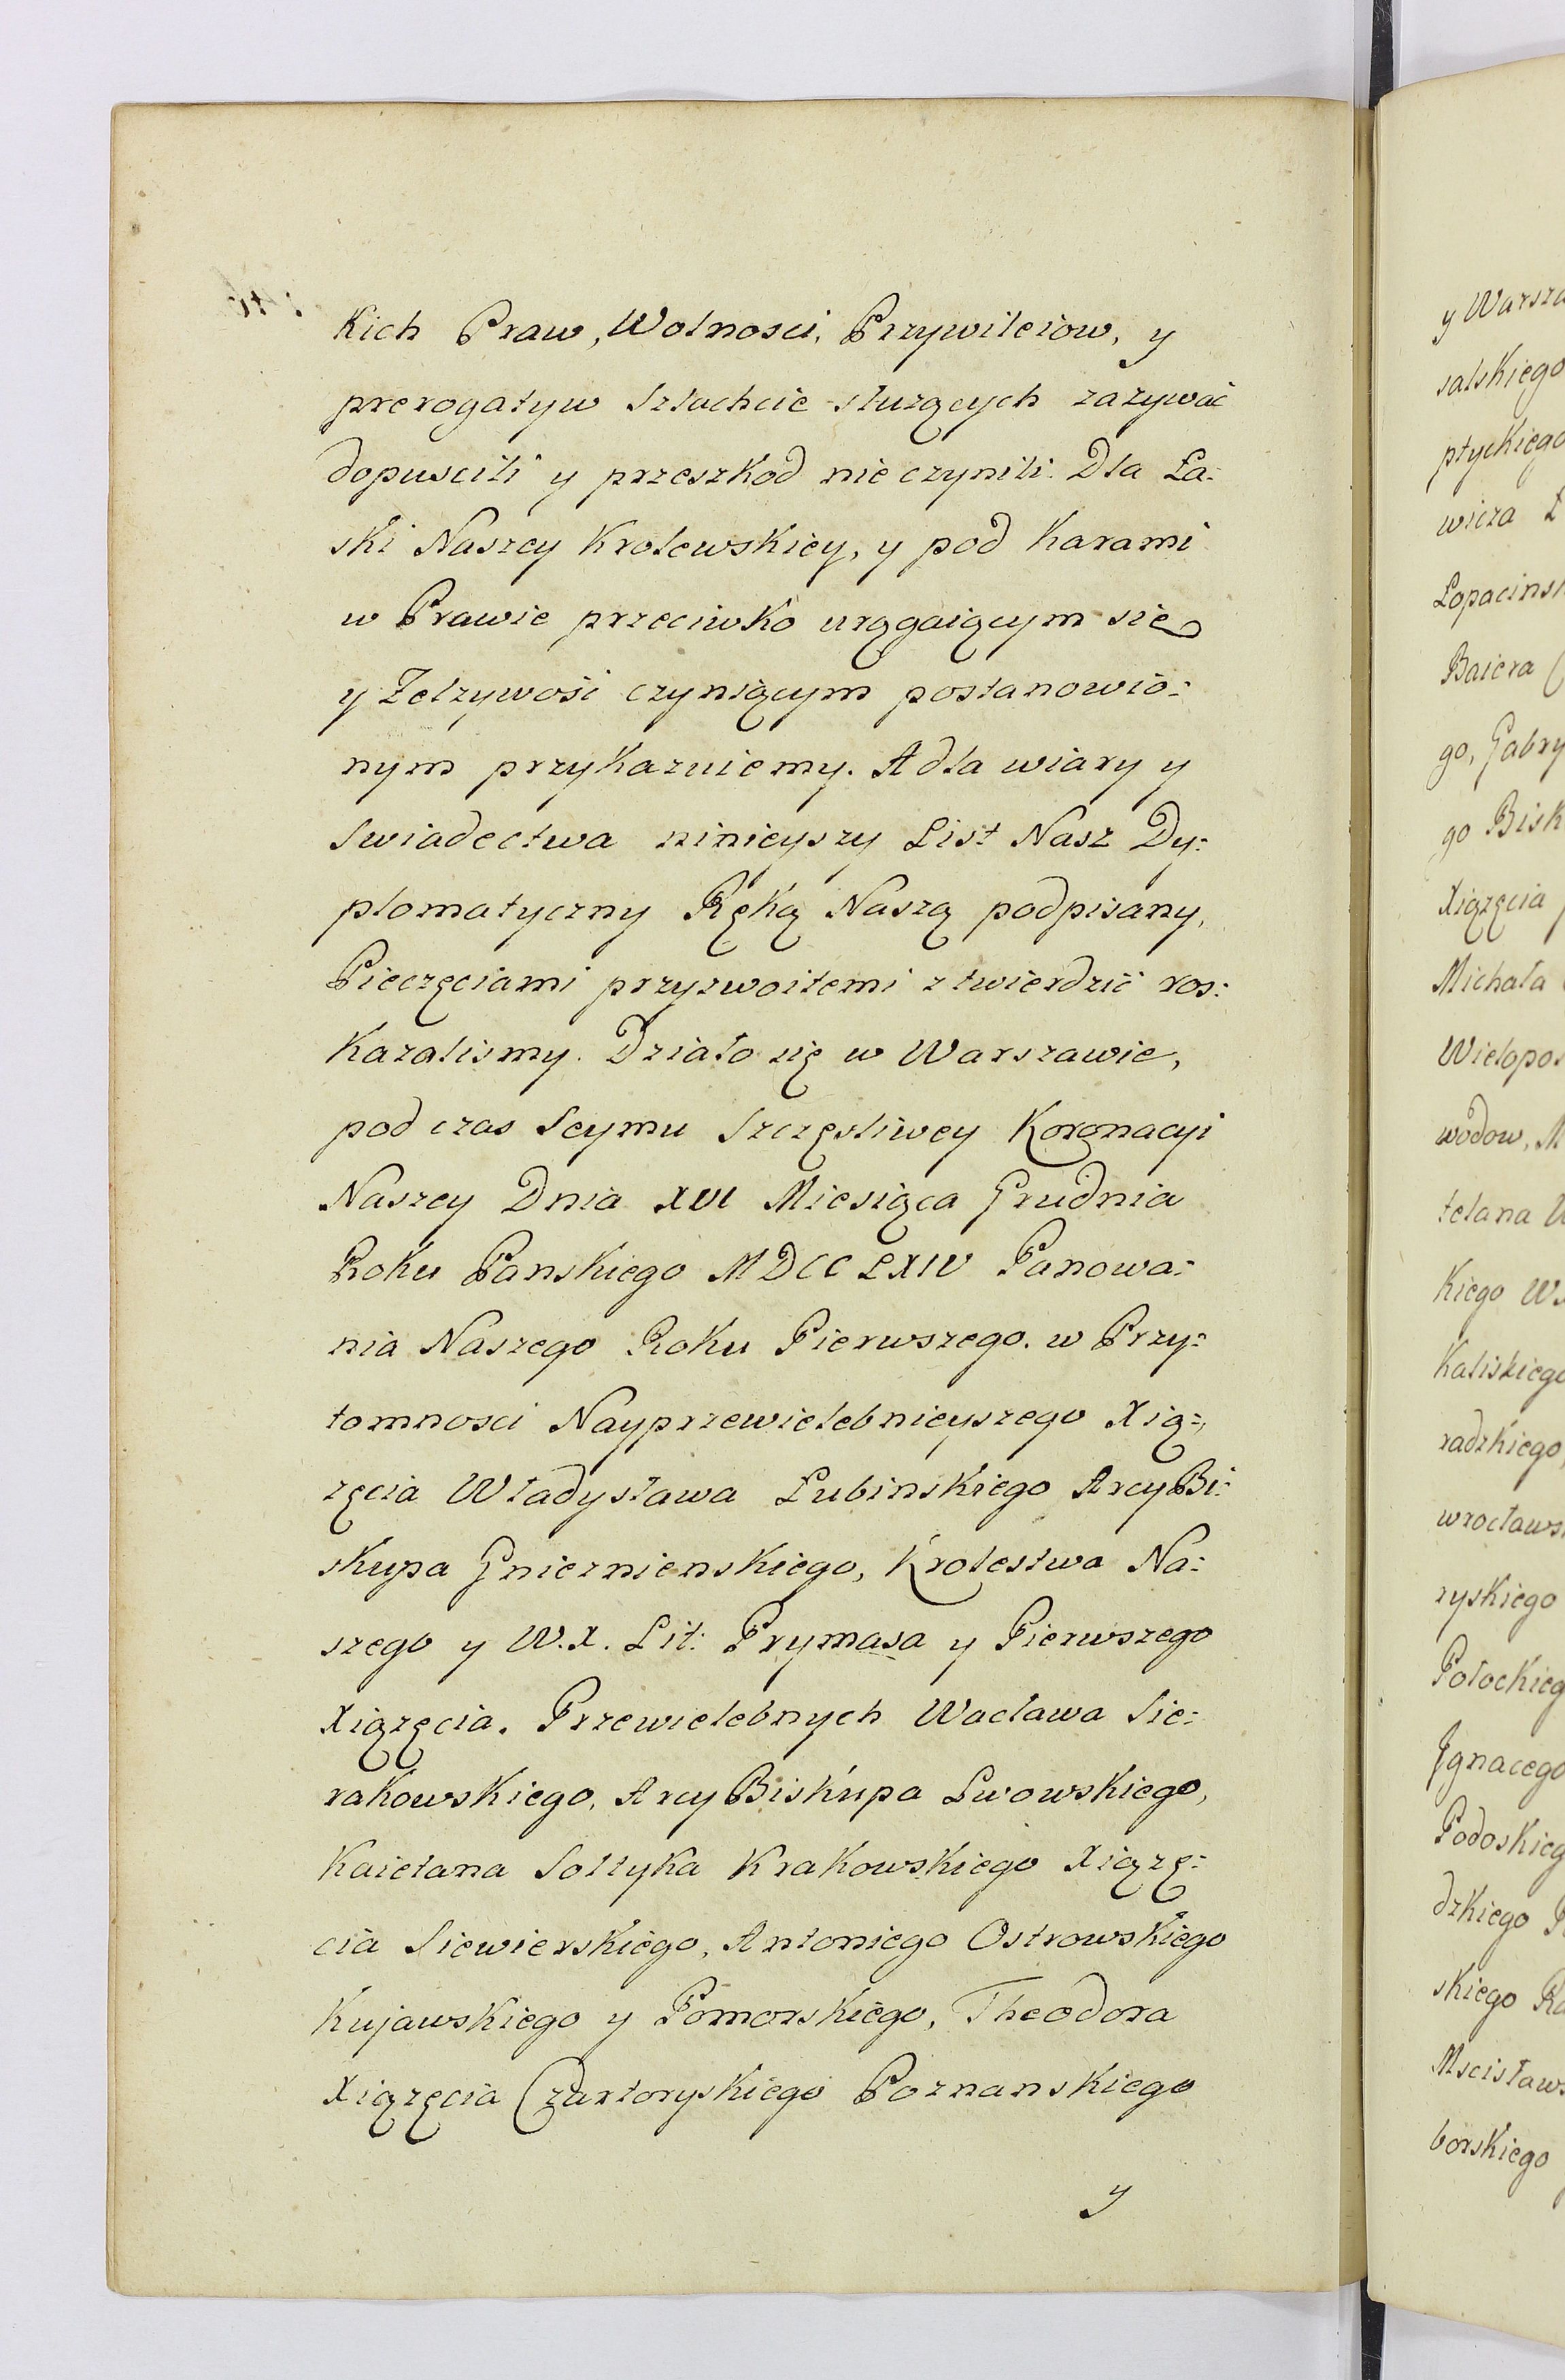 kich Praw, Wolnosci, Przywileiow, y
prerogatyw Szlachcie służących zazywać
dopuscili y przeszkod nie czynili. Dla Ła:
ski Naszey Krolewskiey, y pod karami
w Prawie przeciwko urągaiącym się
y Zelzywośi czyniącym postanowio:
nym przykazuiemy. A dla wiary y
Swiadectwa ninieyszy List Nasz Dy:
plomatyczny Ręką Naszą podpisany,
Pieczęciami przyzwoitemi ztwierdzić ros:
kazalismy. Działo się w Warszawie,
pod czas Seymu Szczęsliwey Koronacyi
Naszey Dnia XVI Miesiąca Grudnia
Roku Panskiego MDCCLXIV Panowa:
nia Naszego Roku Pierwszego. w Przy:
tomnosci Nayprzewielebnieyszego Xią:
zęcia Władysława Łubinskiego ArcyBi:
skupa Gnieznienskiego, Krolestwa Na:
szego y W.X. Lit: Prymasa y Pierwszego
Xiązęcia. Przewielebnych Wacława Sie:
rakowskiego, ArcyBiskupa Lwowskiego,
Kaietana Sołtyka Krakowskiego Xiązę:
cia Siewierskiego, Antoniego Ostrowskiego
Kujawskiego y Pomorskiego, Theodora
Xiązęcia Czartoryskiego Poznanskiego
y
y Warsza
salskiego
ptyckiego
wicza Ł
Łopacins
Baiera
go, Gabry
go Bisk
Xiązęcia
Michała
Wielopos
wodow, M
telana W
kiego Ws
Kaliskiego
radzkiego,
wrocławs
ryskiego
Potockieg
Ignacego
Podoskieg
dzkiego
skiego Ra
Mscisławs
borskiego